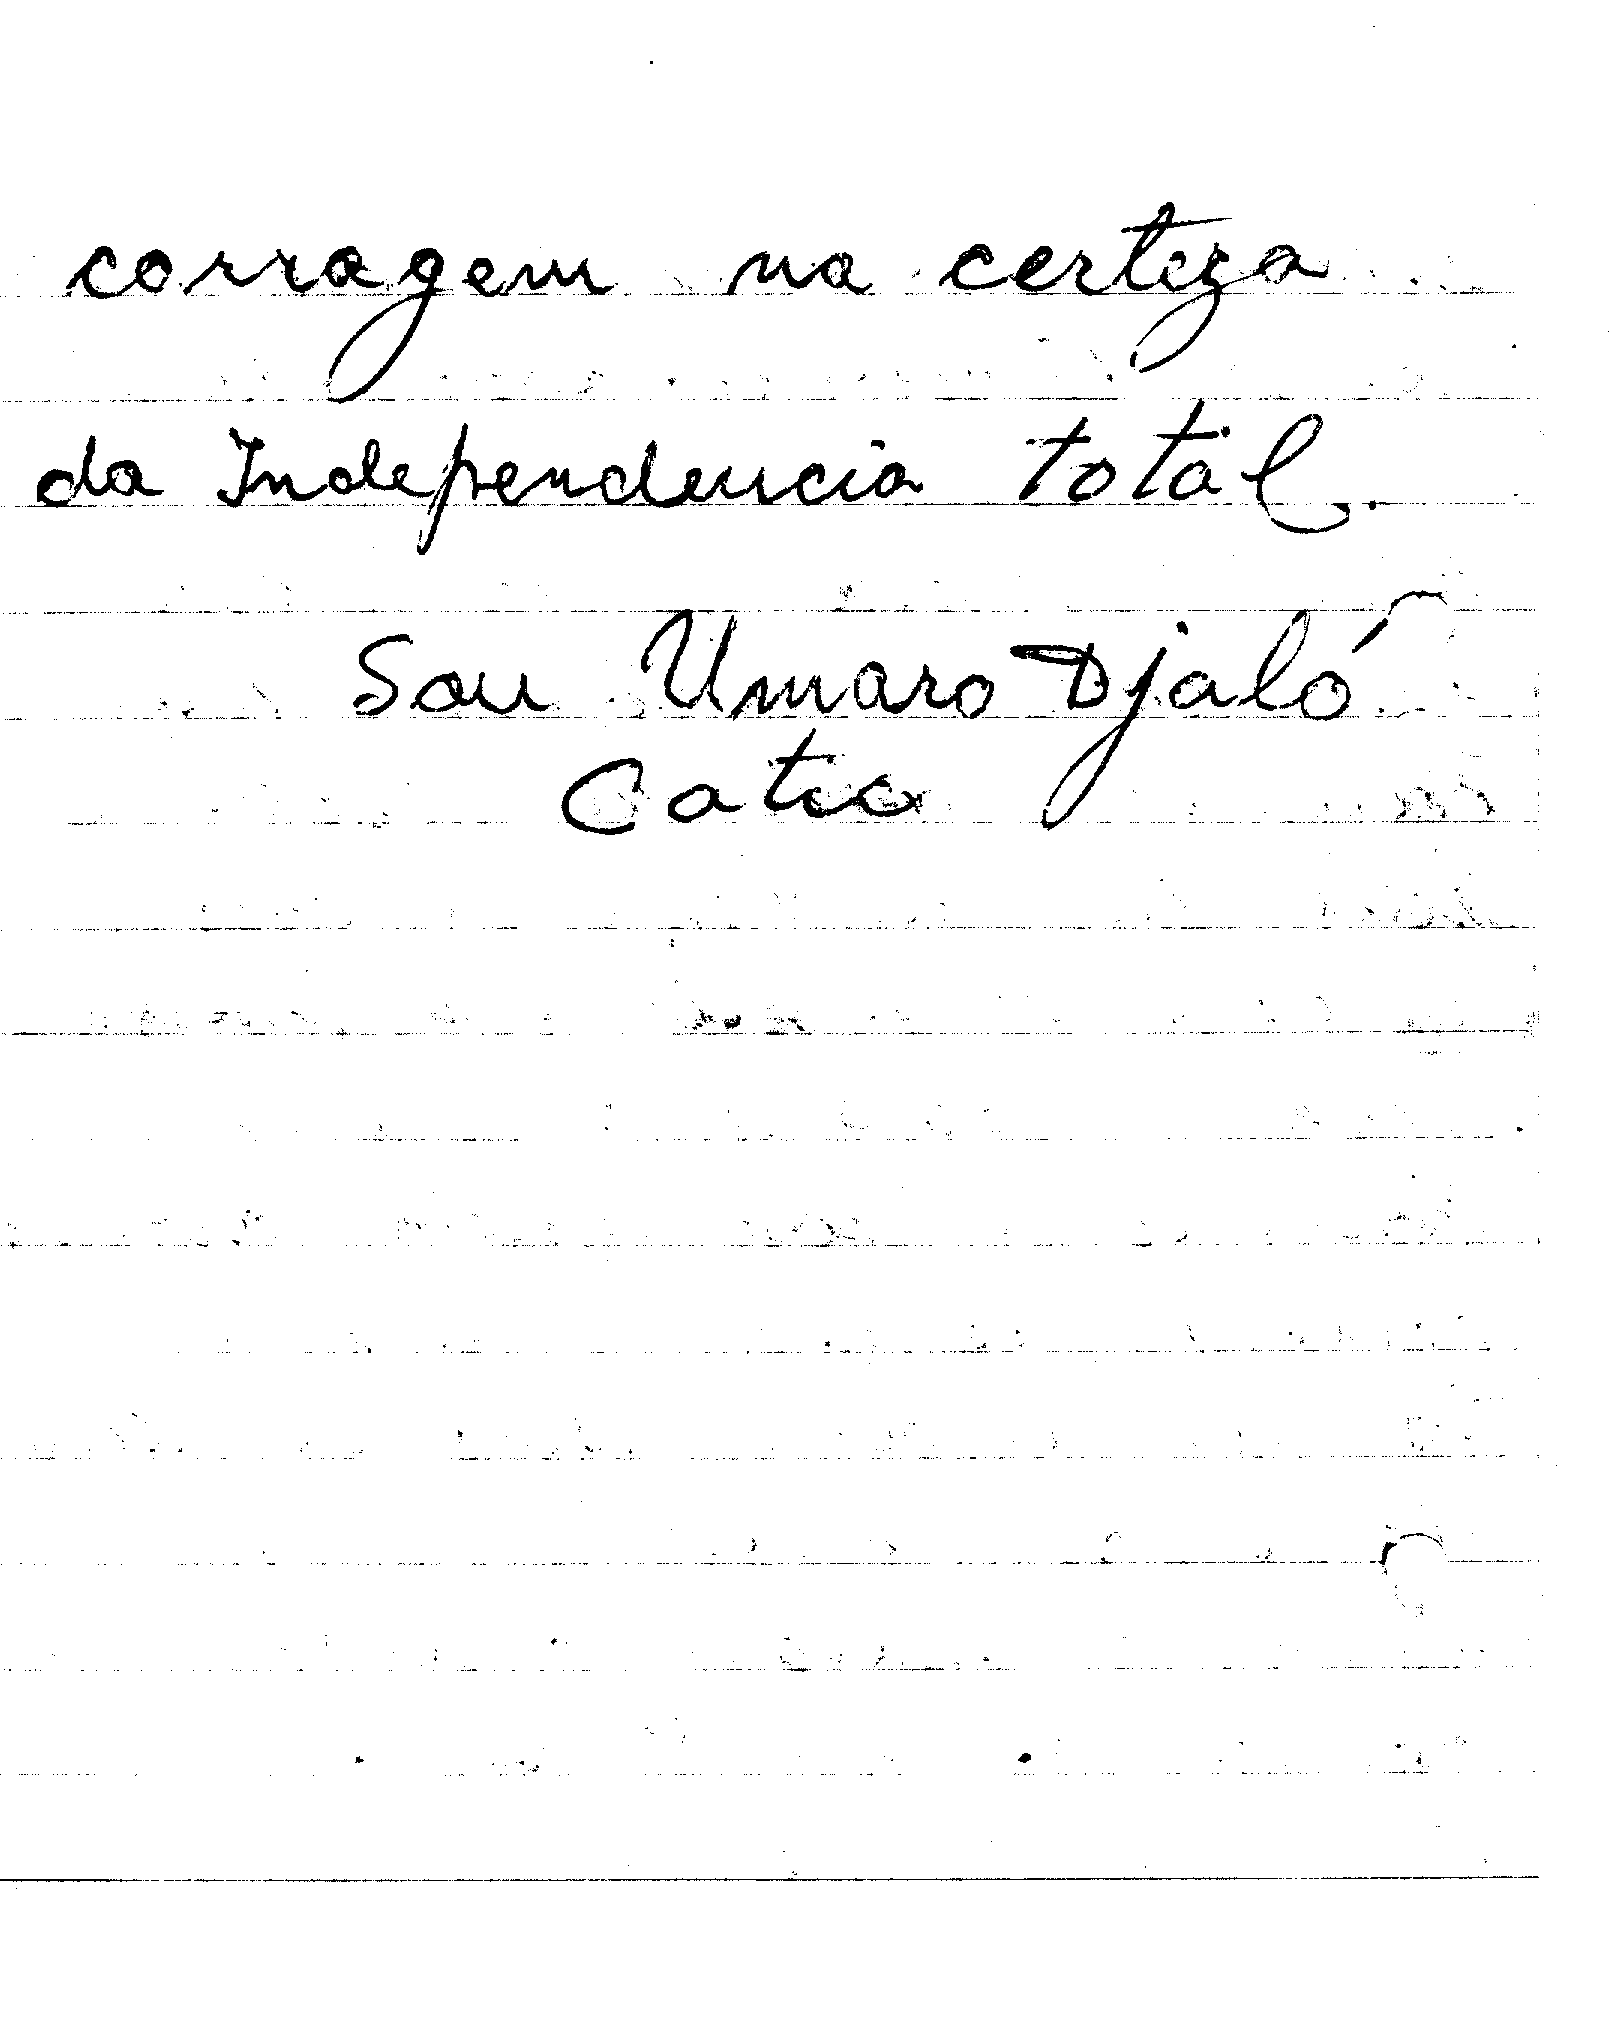 corragem na certeza
da Independencia total.
Sou Umaro Djaló
Catio